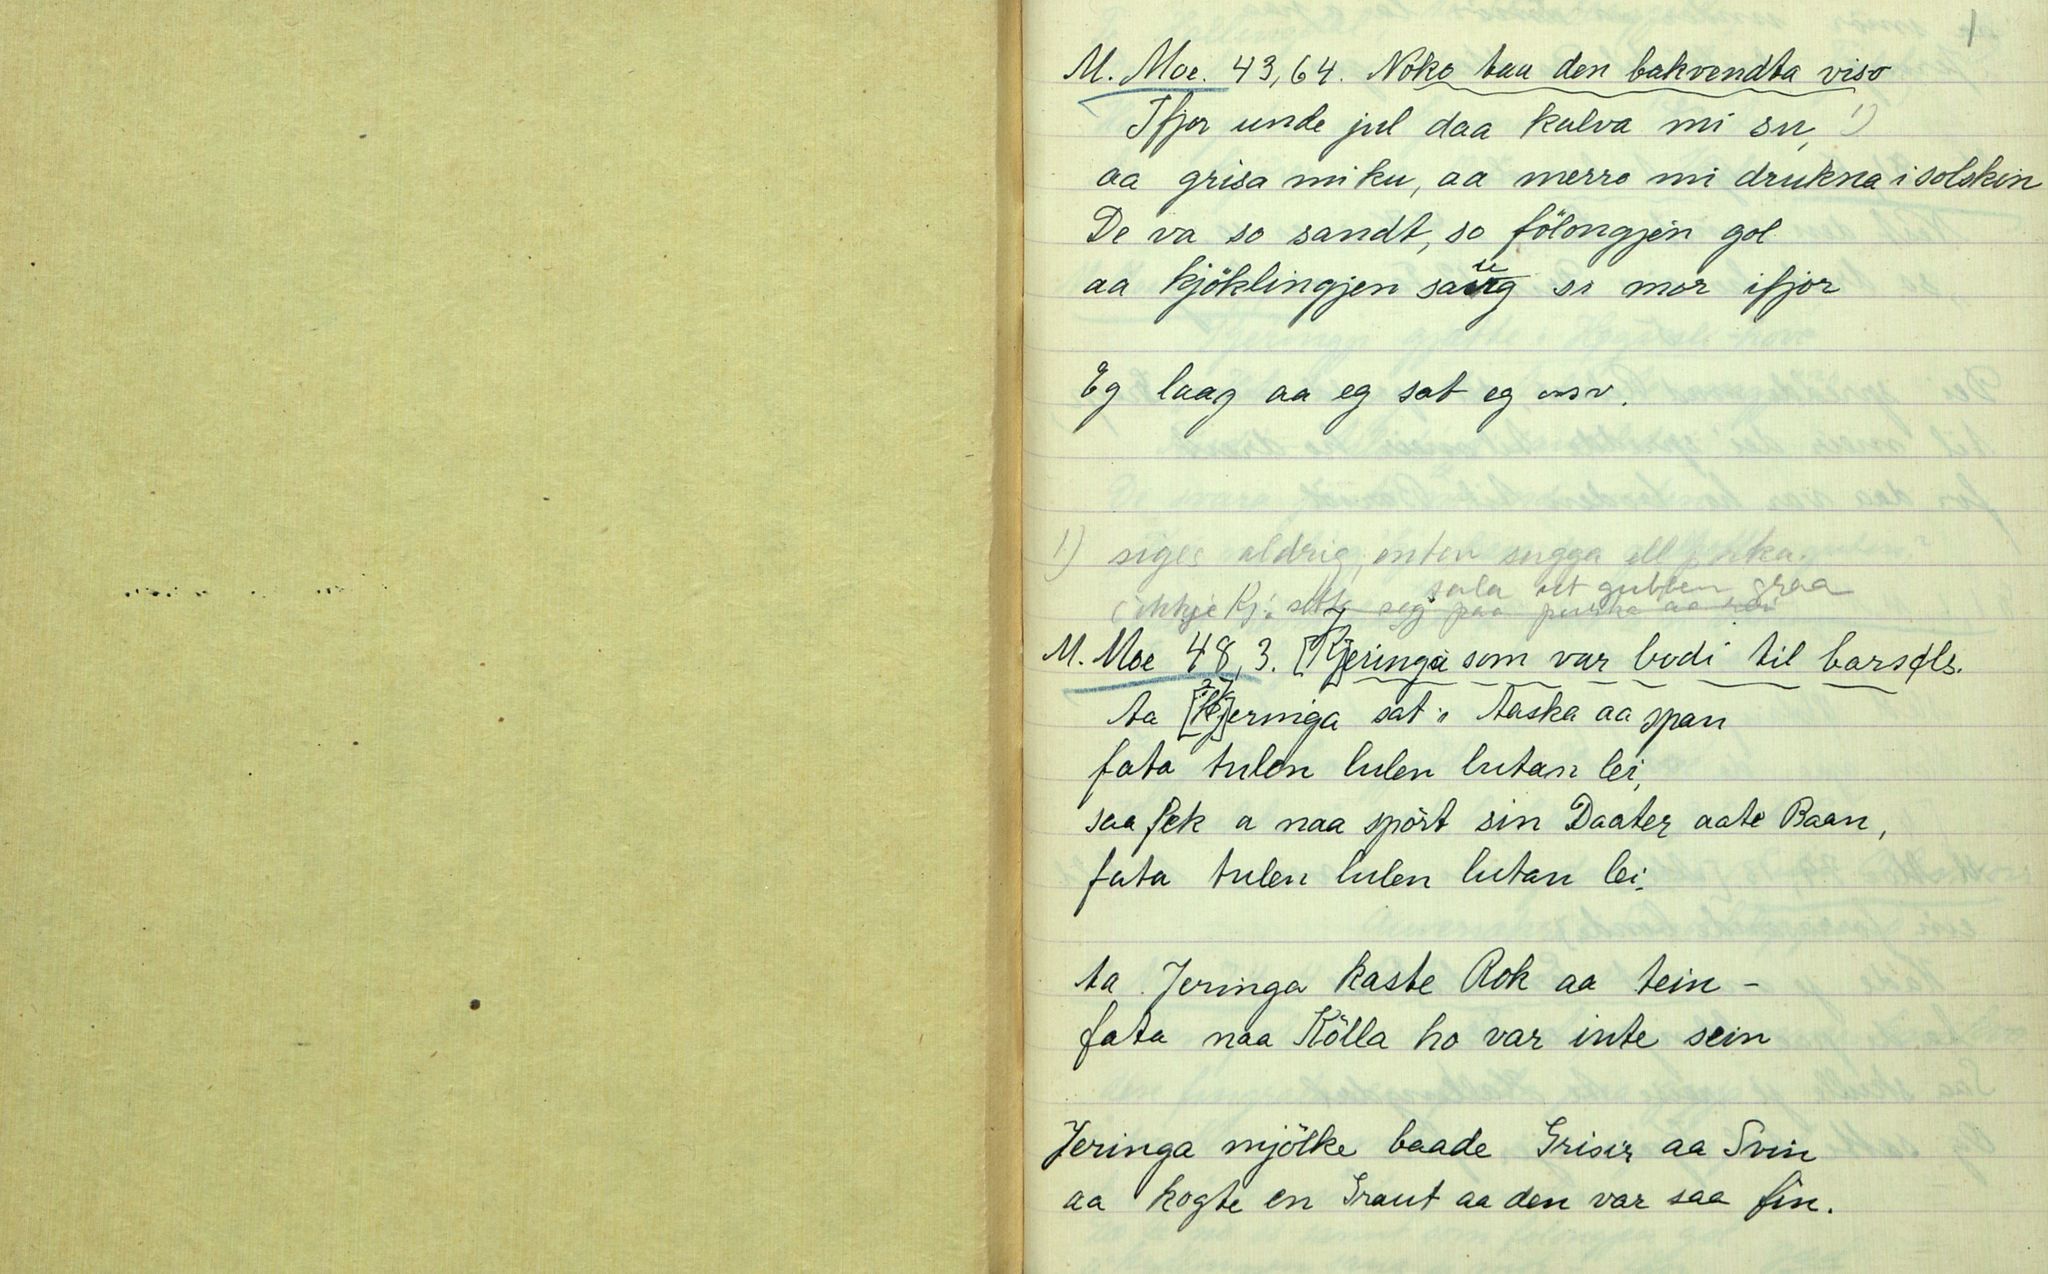 1
M. Moe. 43,64. Noko taa den bakvendta viso
Ifjor unde jul daa kalva mi su, 1)
aa grisa mi ku, aa merro mi drukna i solskin
De va so sandt, so fölongjen gol
aa kjöklingjen saug si mor ifjor
Eg laag aa eg sat eg osv.
1) siges aldrig, enten sugga ell purka.
sala ut gubben graa
(ikkje Kj: sette seg paa purka aa
M. Moe 48,3. [Kj]eringa som var bodi til barsøls.
ta [Kj]eringa sat i Taska aa span
fata tulen lulen lutan lei,
saa fek a naa spört sin Daater aate Baan,
fata tulen lulen lutan lei.
ta Jeringa kaste Rok aa tein –
fata naa Kölla ho var inte sein
Jeringa mjölke baade Grisir aa Svin
aa kogte en Graut aa den var saa fin.